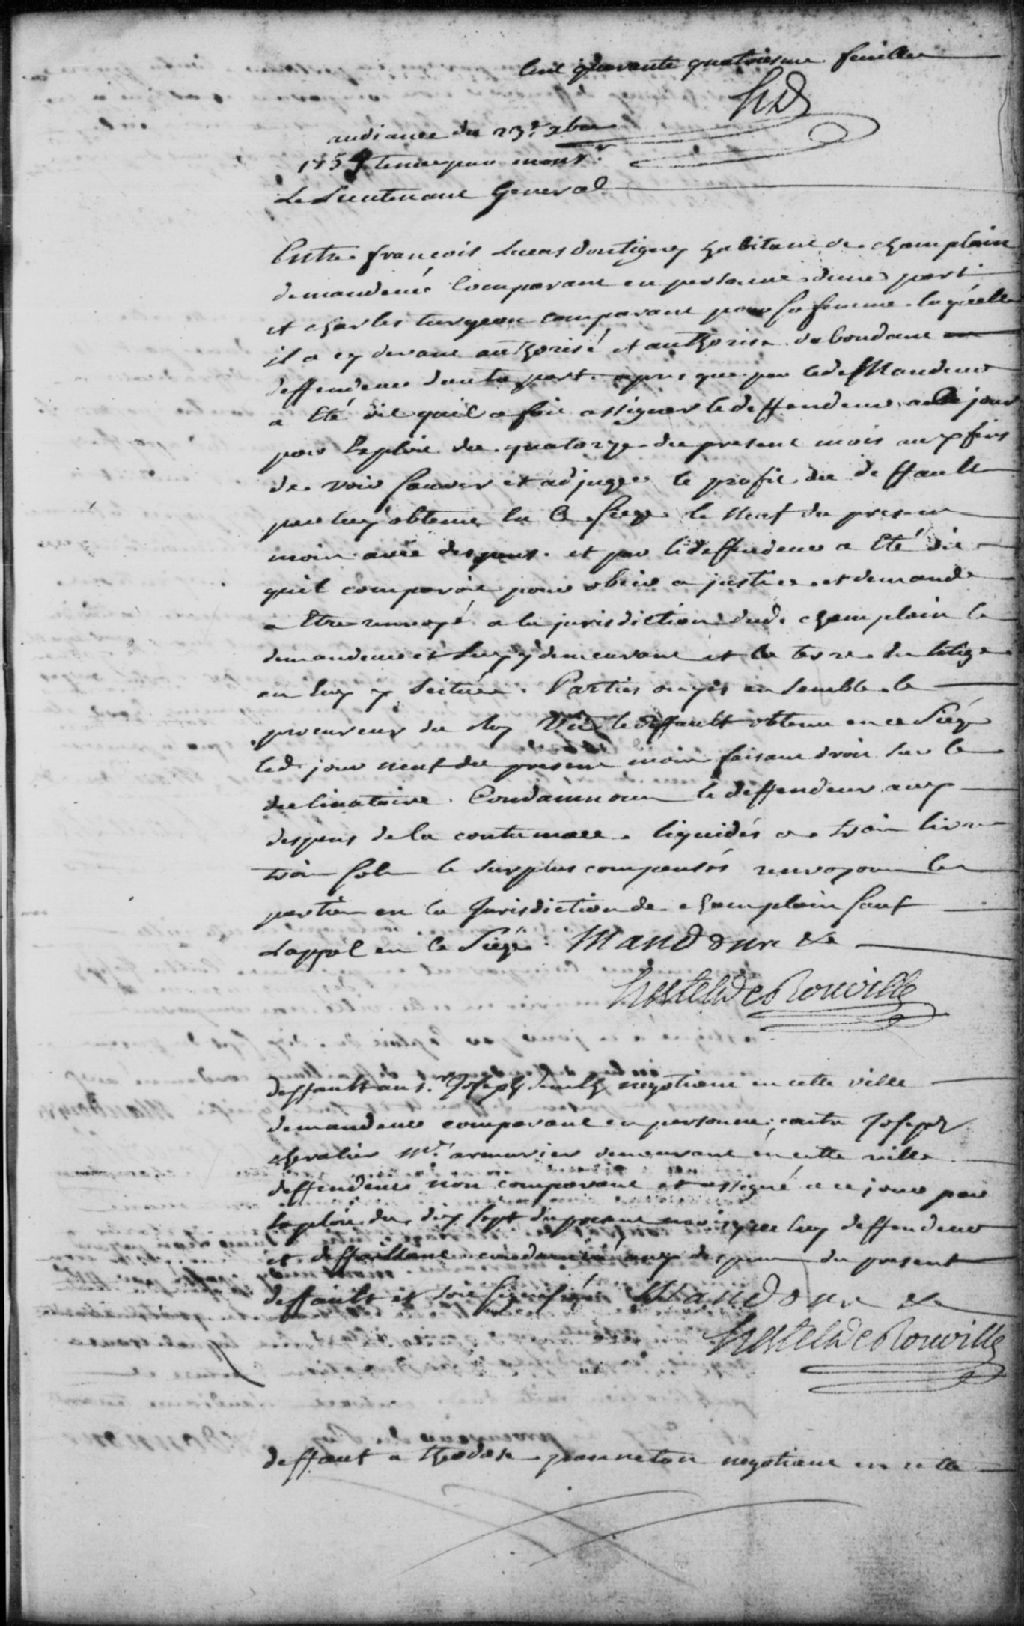 Cent quarante quatriesme feuillet
HD
audiance du 23e xbre
1754 tenue par monsr
Le Lieutenant General
Entre françois Lucas dontigny habitant de champlain
demandeur comparant en personne dune part
et charles turgeon comparant pour sa femme laquelle
il a cy devant authorisé et authorise dabondant
deffendeur dautre part, apres que par led. demandeur
a été dit quil a fait assigner le deffendeur a ce jour
par Exploit du quatorze du present mois aux fins
de voir sauver et adjuger le profit du deffault
par luy obtenu en ce siege le neuf du present
mois avec despens. et par le deffendeur a été dit
quil comparoit pour obeir a justice et demande
a Etre renvoyé a la jurisdiction dud. champlain le
demandeur et luy y demeurant et la terre du litige
en luy y scituée. Parties ouyes ensemble le
procureur du Roy Veu le deffault obtenu en ce Siege
led. jour neuf du present mois faisant droit sur le
declinatoire. Condamnons le deffendeur aux
despens de la contumace liquidés a trois livres
trois sols le surplus compensés renvoyons les
parties en la Jurisdiction de champlain sauf
Lappel en ce Siege. Mandons &c
Hertel De Rouville
deffault au sr. Joseph negotiant en cette ville
demandeur comparant en personne, contre Joseph
chevalier Me. armurier demeurant en cette ville
deffendeur non comparant et assigné a ce jour par
Exploit du dix sept du present mois, que luy deffendeur
et deffaillant condamné aux despens du present
deffault et soit signifié Mandons &c
Hertel De Rouville
deffaut a theodore jeanneton negotiant en cette